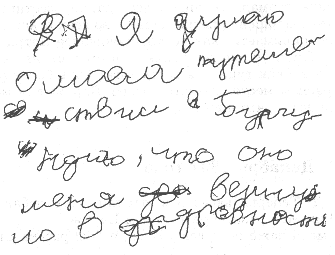 Я думаю
о моем путеше
ствии в Бурну
ндию, что оно
меня верну
ло в древности